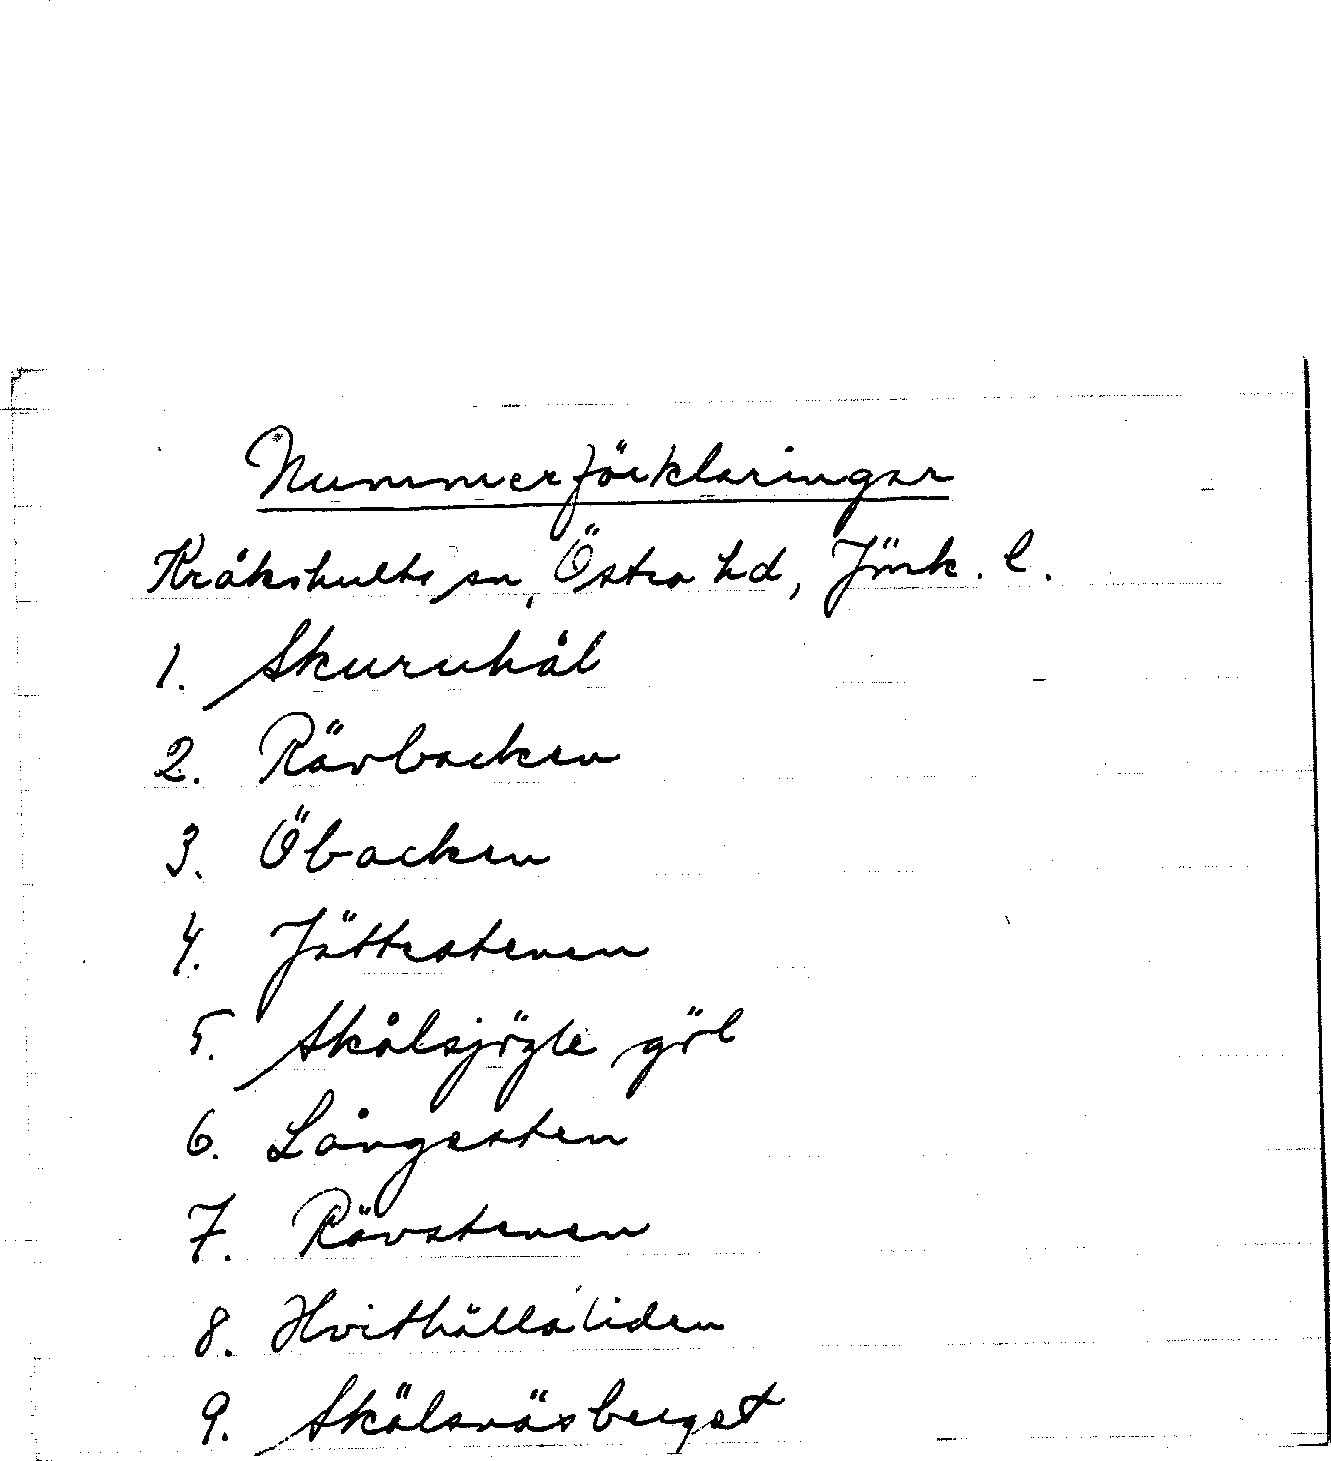 Nummerförklaringar
Kråkshults sn, Östra hd, Jönk. l.
1. Skuruhål
2. Rävbacken
3. Öbacken
4. Jättestenen
5. Skålsjögle göl
6. Långesten
7. Rävstenen
8. Hvithällaliden
9. Skälsnäsberget